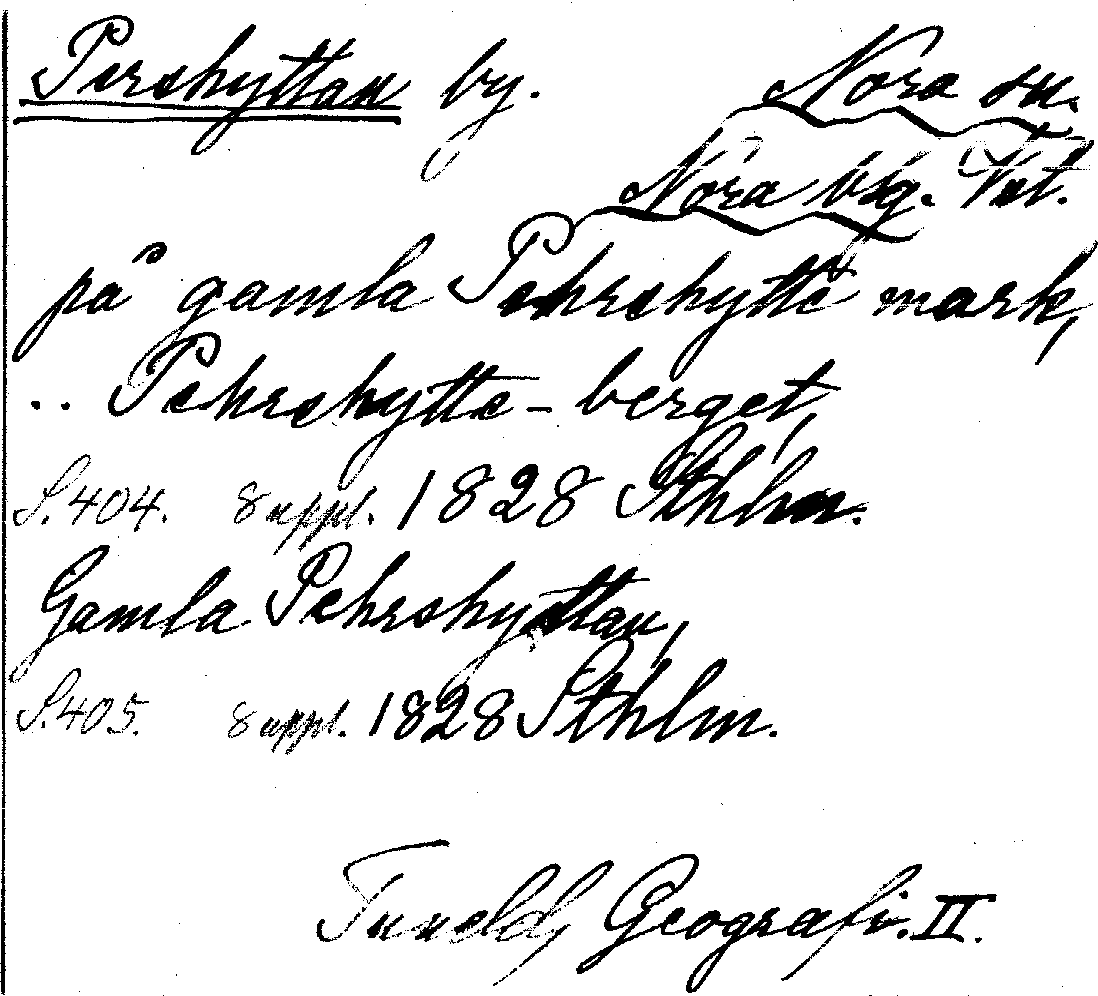 Pershyttan by. Nora sn.
Nora bsg. Vstl.
på gamla Pehrshytte mark,
.. Pehrshytte-berget,
S.404. 8 uppl. 1828 Sthlm.
Gamla Pehrshyttan,
S.405. 8 uppl. 1828 Sthlm.
Tuneld, Geografi. II.